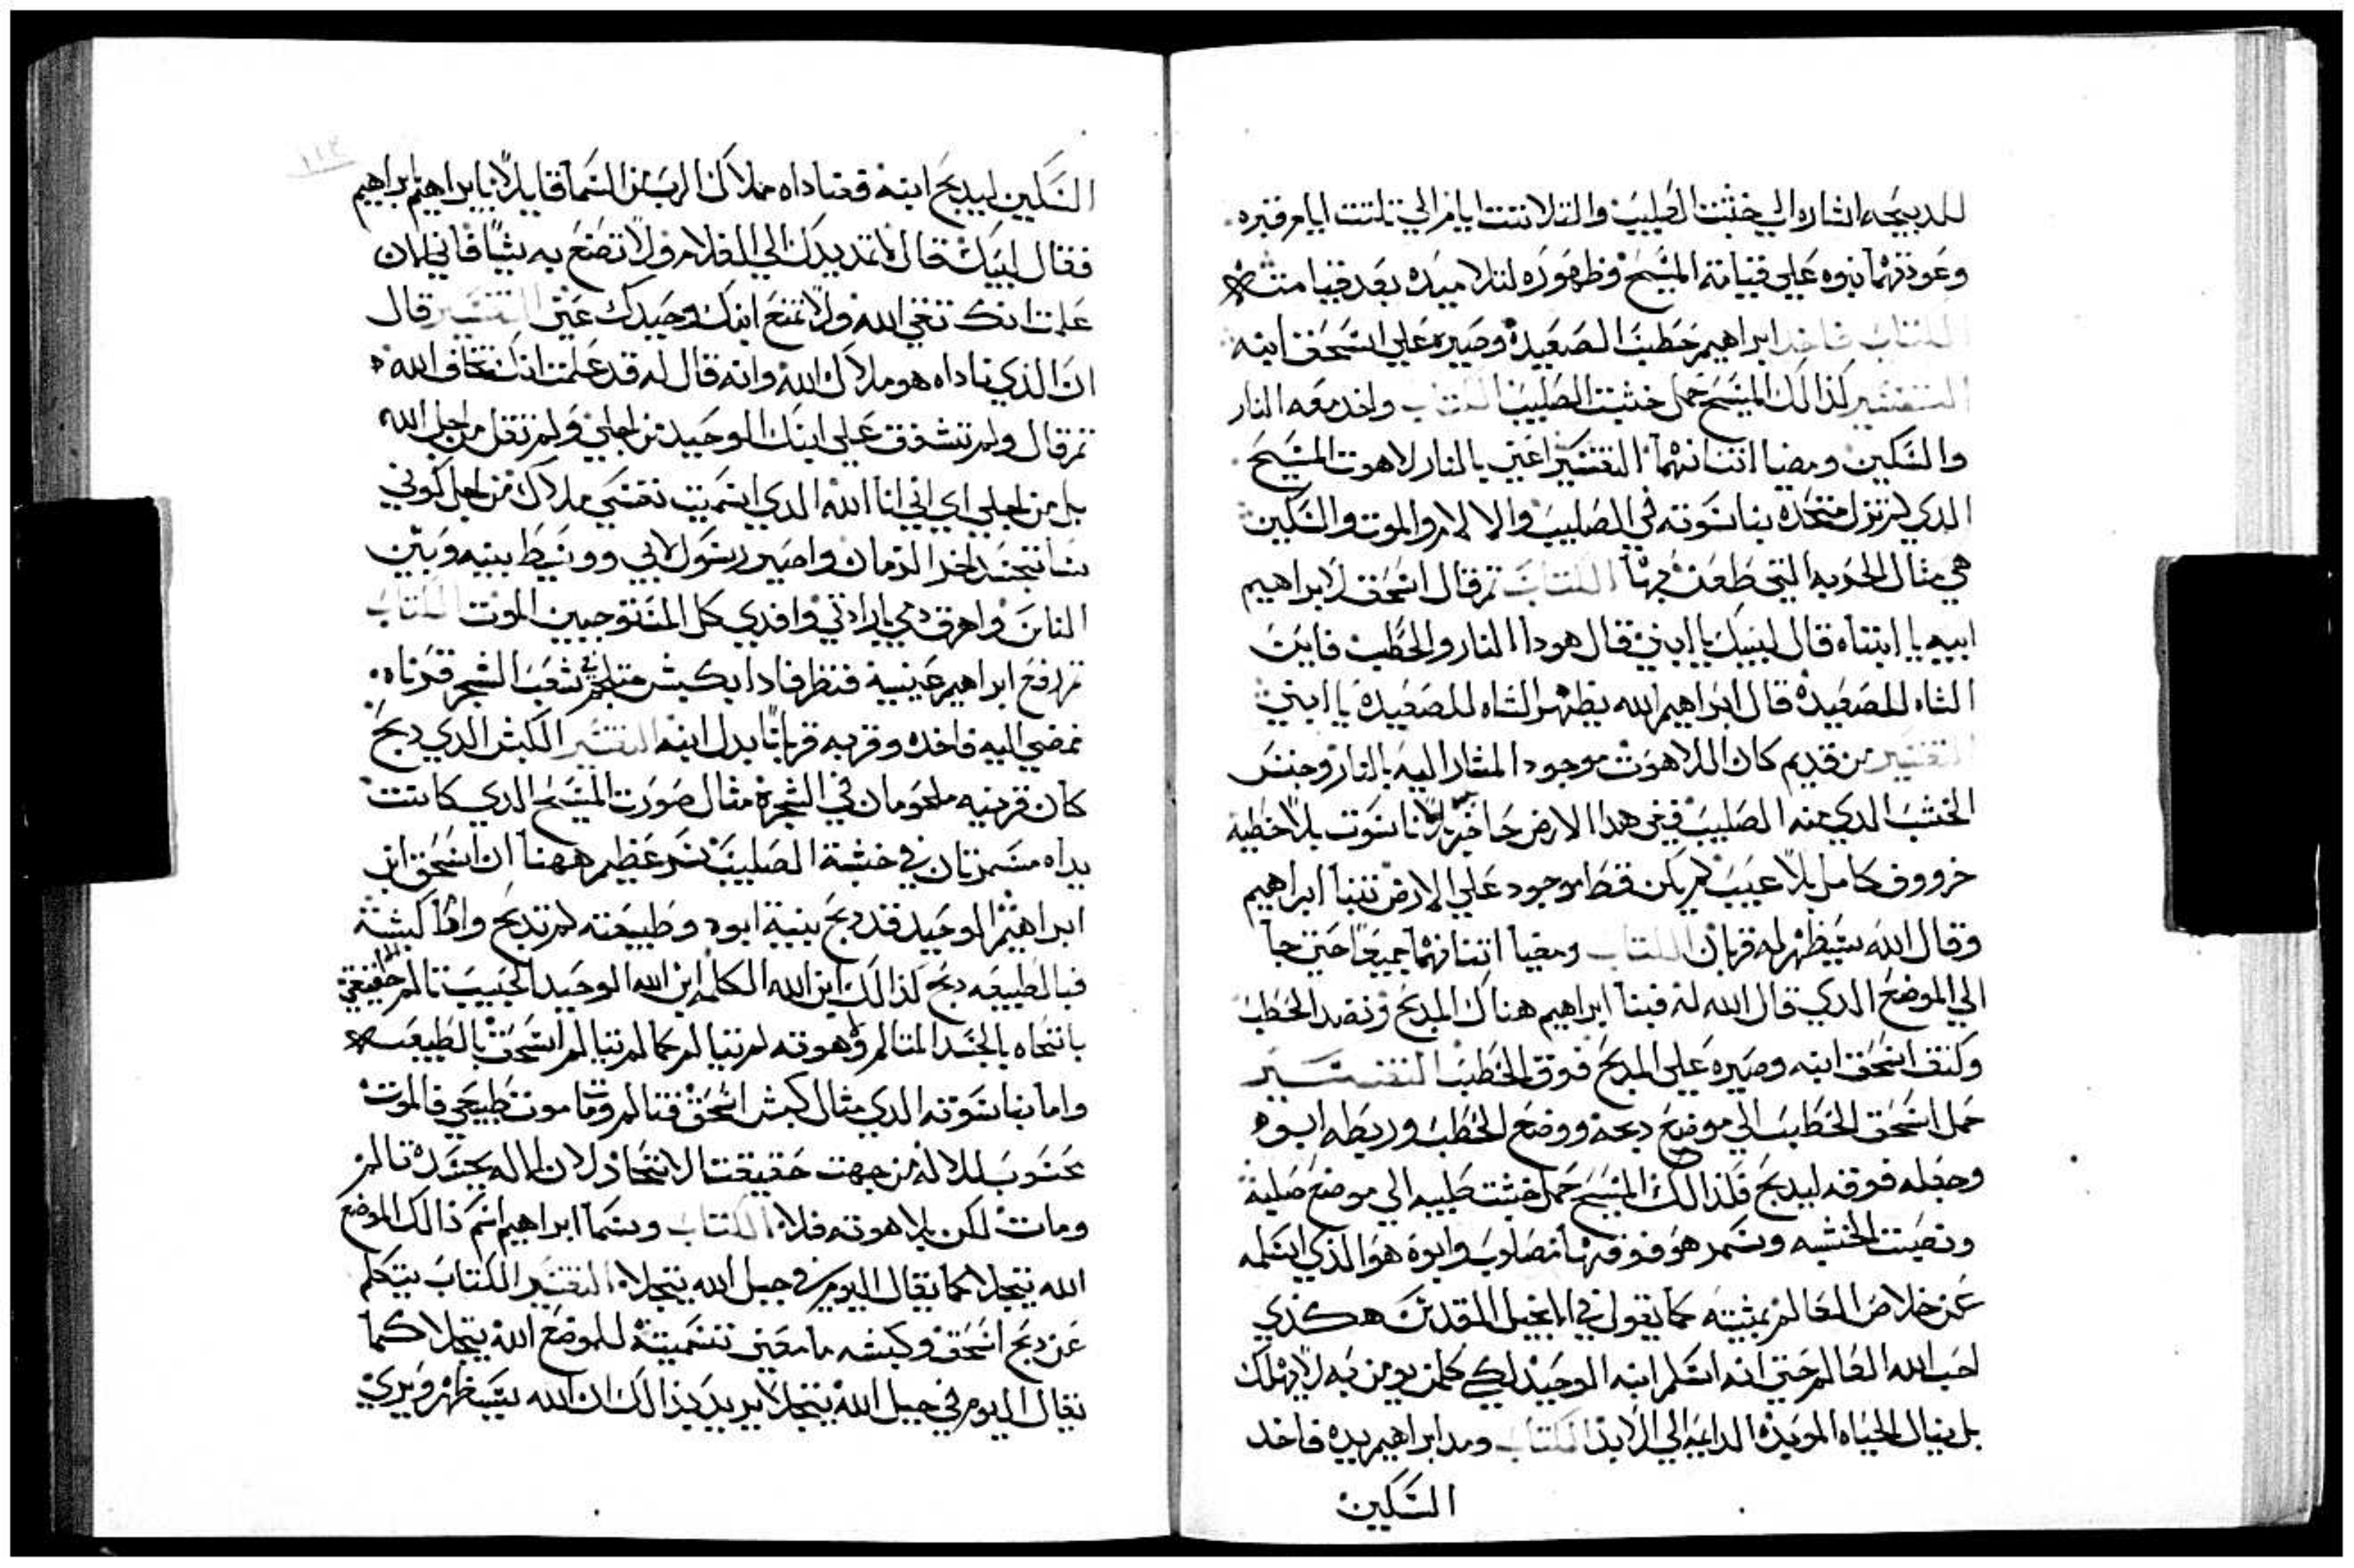 للدبيحه اشاره الي خشبت الصليب والتلاتت ايام الي تلتت ايام قبره
وعودتهما نبوه علي قيامة المسيح وظهوره لتلاميده بعد قيامته
الكتاب فاخد ابراهيم حطب الصعيدة وصيره علي اسحق ابنه
التفسير كذالك المسيح حمل خشبت الصليب الكتاب واخد معه النار
والسكين ومضيا اتنانهما التفسير اعني بالنار لاهوت المسيح
الدي لم تزل متحده بناسوته في الصليب والالام والموت والسكين
هي مثال الحربه التي طعن بها الكتاب تم قال اسحق لابراهيم
ابيه يا ابتاه قال لبيك يا ابني قال هودا النار والحطب فاين
الشاه للصعيدة قال ابراهيم الله يظهر الشاه للصعيدة يا ابني
التفسير من قديم كان اللاهوت موجود المشار اليه بالنار وجنس
الخشب الدي منه الصليب ففي هدا الارض حاضر ناسوت بلا خطية
خرووف كامل بلا عيب لم يكن قط موجود علي الارض تنبا ابراهيم
وقال الله سيظهر له قربان الكتاب ومضيا اتنانهما جميعا حتي جا
الي الموضع الدي قال الله له فبنا ابراهيم هناك المدبح ونضد الحطب
وكتف اسحق ابنه وصيره علي المدبح فوق الحطب التفسير
حمل اسحق الحطب الي موضع دبحه ووضع الحطب وربطه ابوه
وجعله فوقه ليدبح فلذالك المسيح حمل خشبت صليبه الي موضع صلبه
ونصبت الخشبه وسمر هو فوقها مصلوب وابوه هو الذي اسلمه
عن خلاص العالم بمشيته كما يقول في الانجيل المقدس هكذي
احب الله العالم حتي انه اسلم ابنه الوحيد لكي كلمن يومن به لا يهلك
بل ينال الحياه الموبده الدايمه الي الابد الكتاب ومد ابراهيم يده فاخد
السكين
السكين ليدبح ابنه فناداه ملاك الرب من السما قايلا يا ابراهيم ابراهيم
فقال لبيك قال لا تمد يدك الي الغلام ولا تصنع به شيا فاني الان
علمت انك تتقي الله ولا تمنع ابنك وحيدك عني التفسير قال
ان الذي ناداه هو ملاك الله وانه قال له قد علمت انك تخاف الله
تم قال ولم تشفق علي ابنك الوحيد من اجلي ولم تقل من اجل الله
بل من اجلي اي اني انا الله الدي اسميت نفسي ملاك من اجل كوني
ساتجسد اخر الزمان واصير رسول لابي ووسيط بينه وبين
الناس واهرق دمي بارادتي وافدي كل المستوجبين الموت الكتاب
تم رفع ابراهيم عينيه فنظر فادا بكبش ملتحم في شعب الشجر قرناه
فمضي اليه فاخده وقربه قربانا بدل ابنه التفسير الكبش الدي دبح
كان قرنيه ملحومان في الشجرة مثال صورت المسيح الدي كانت
يداه مسمرتان في خشبة الصليب سر عظيم ههنا ان اسحق ابن
ابراهيم الوحيد قد دبح بنية ابوه وطبيعته لم تدبح واما كبشه
فبالطبيعه دبح لذالك ابن الله الكلمه ابن الله الوحيد الحبيب تالم حقيقي
باتحاه بالجسد المتالم ولاهوته لم تتالم كما لم تتالم اسحق بالطبيعه
واما بناسوته الدي مثال كبش اسحق فتالم ومات موت طبيعي فالموت
محسوب للاله من جهت حقيقت الاتحاد لان الاله بجسده تالم
ومات لكن بلاهوته فلا الكتاب وسما ابراهيم اسم ذالك الموضع
الله يتجلا كما يقال اليوم في جبل الله يتجلا التفسير الكتاب يتكلم
عن دبح اسحق وكبشه ما معني تسميته للموضع الله يتجلا كما
يقال اليوم في جبل الله يتجلا يريد بذالك ان الله سيظهر ويري